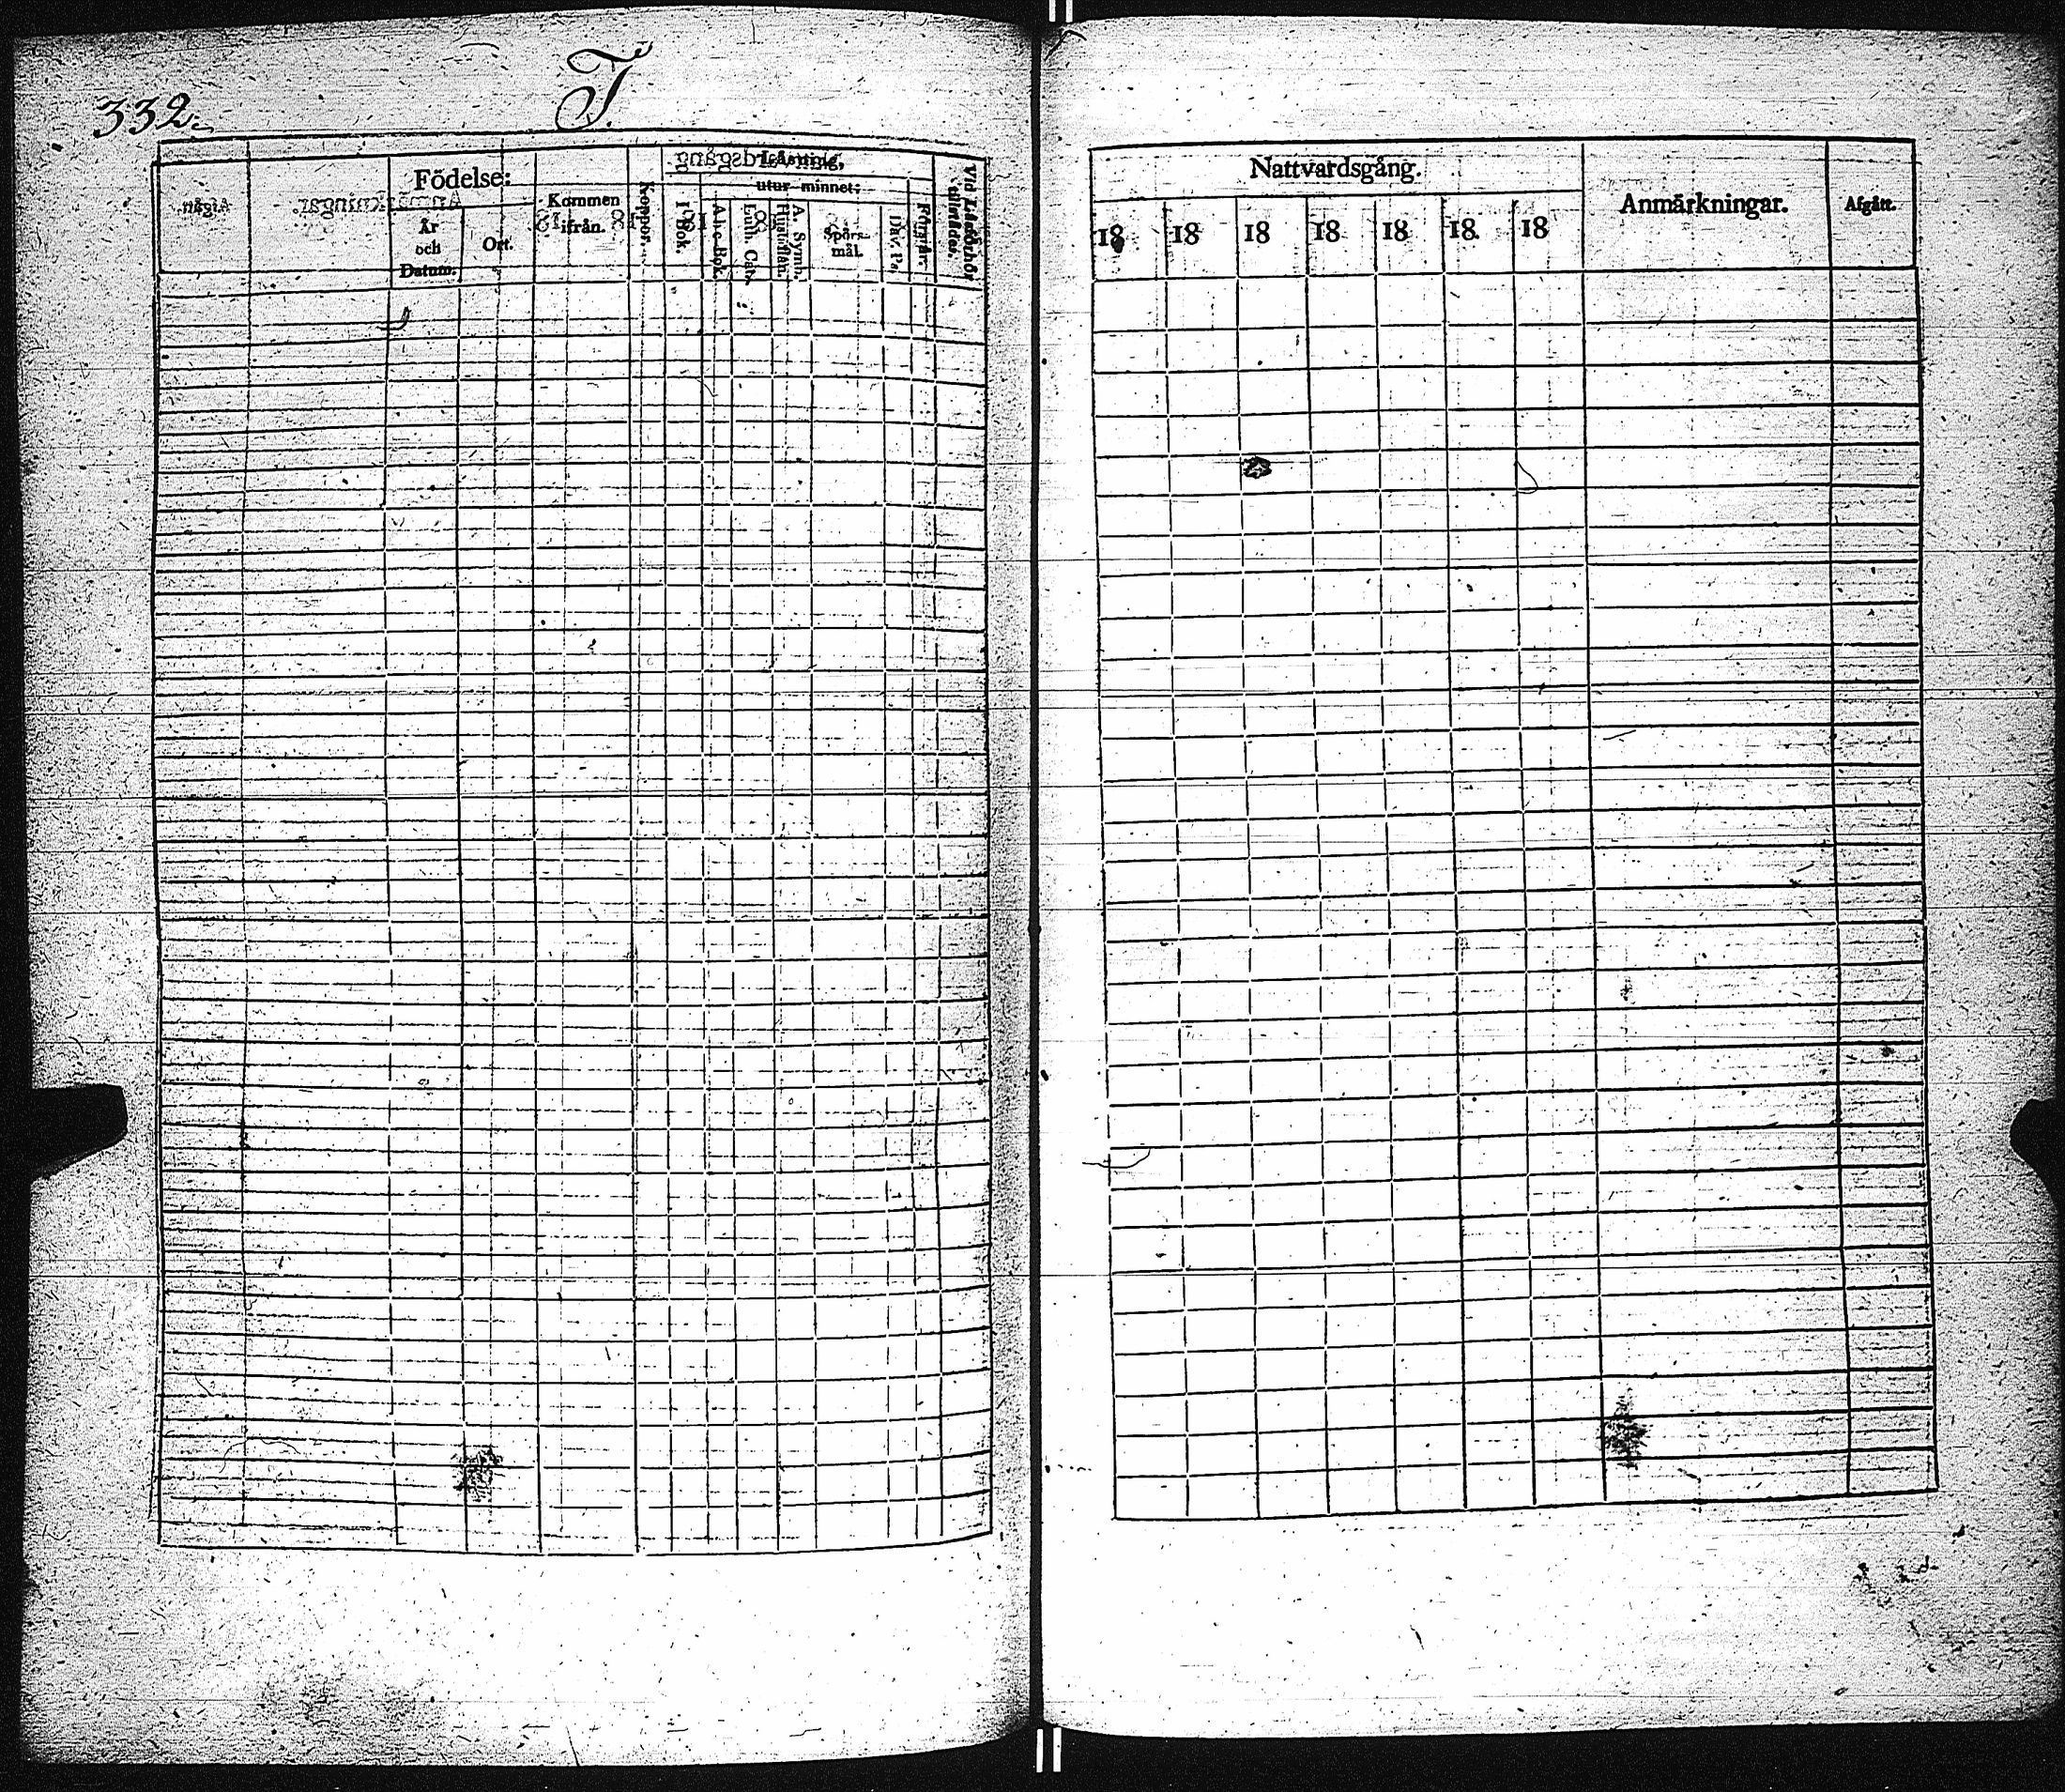 332.
T.
Födelse:
År
och
Datum.
Ort.
Kommen
ifrån.
Koppor.
Läsning,
I Bok.
utur minnet:
A. b. c. Bok.
Luth. Cat.
A. Symb.
Hustaflan.
Spörs-
mål.
Dav. Ps.
Förstår.
Vid Läsförhör
tillstädes.
Nattvardsgång.
18 18 18 18 18 18 18
Anmärkningar.
Afgått.